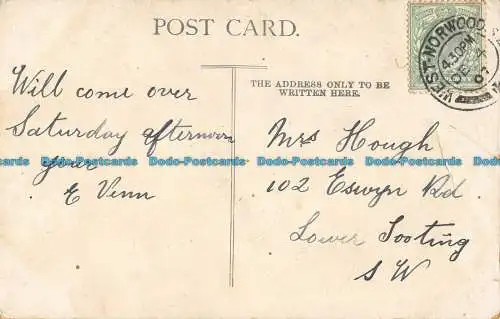 POST CARD.
WEST-NORWOOD. S.E.
4.30PM
4
07
THE ADDRESS ONLY TO BE
WRITTEN HERE.
Will come over
Saturday afternoon
your
E Venn
Mrs Hough
102 Eswyn Rd
Lower Tooting
S W
Dodo-Postcards Dodo-Postcards Dodo-Postcards Dodo-Postcards Dodo-Postcards